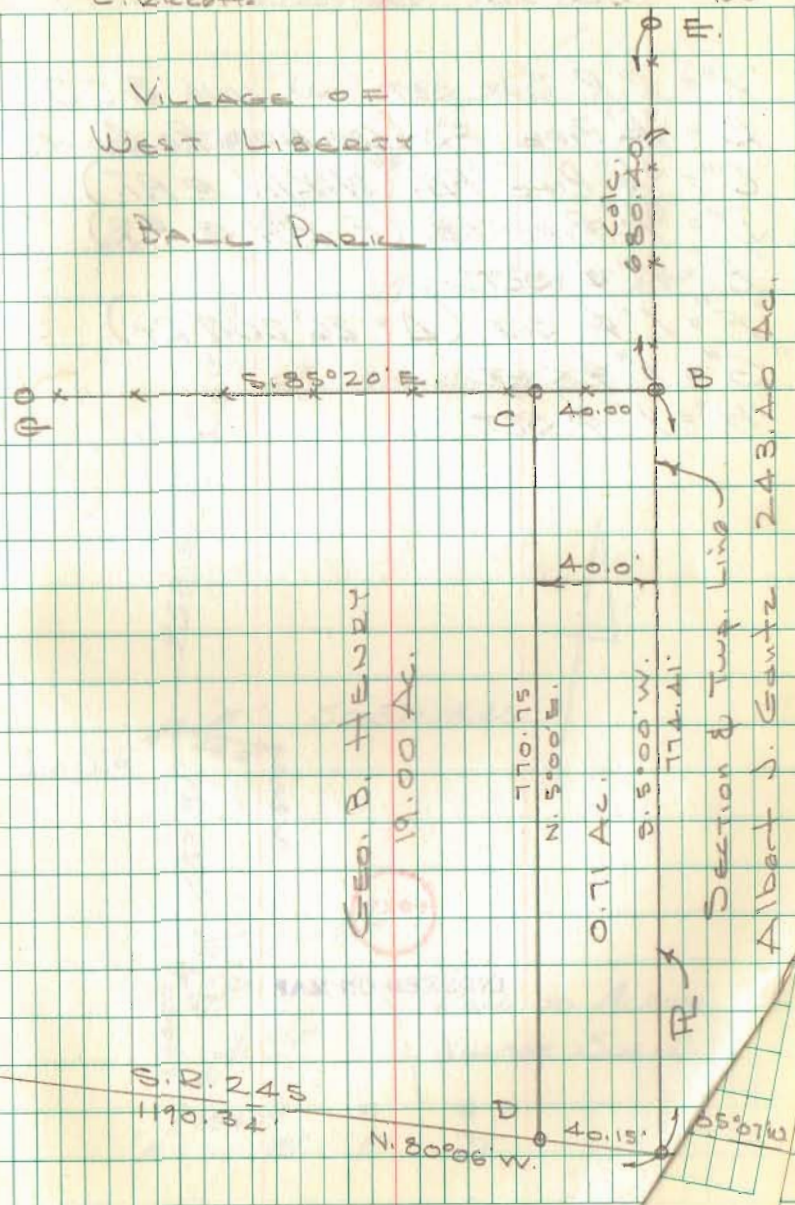 VILLAGE OF
WEST LIBERTY
BALL PARK
E.
Calc.
680.40
S. 85° 20' E.
B
C
40.00
40.0'
GEO. B. HENRY
19.00 Ac.
770.75
N. 5°00' E.
0.71 Ac.
S. 5°00' W.
774.41'
Section & Twp. Line
Albert J. Gantz 243.40 Ac.
PL
S.R. 245
1190.34'
N. 80°06' W.
D
40.15'